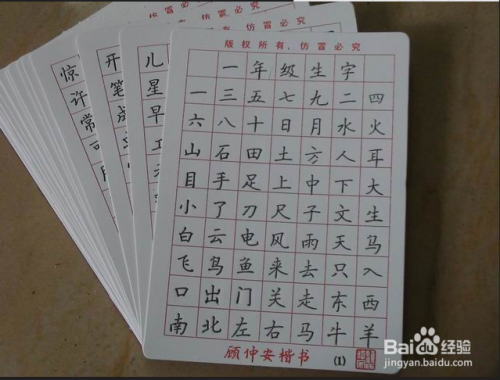 版权所有,仿冒必究
一年级生字
一三五七九二四
六八十日月水火
山石田土方人耳
目手足上中下大
小了刀尺子文生
白云电风雨天马
飞鸟鱼来去只入
口出门关走东西
南北左右马牛羊
顾仲安楷书 (1)
儿
星
早
开
笔
惊
许
常
Baidu经验
jingyan.baidu.com